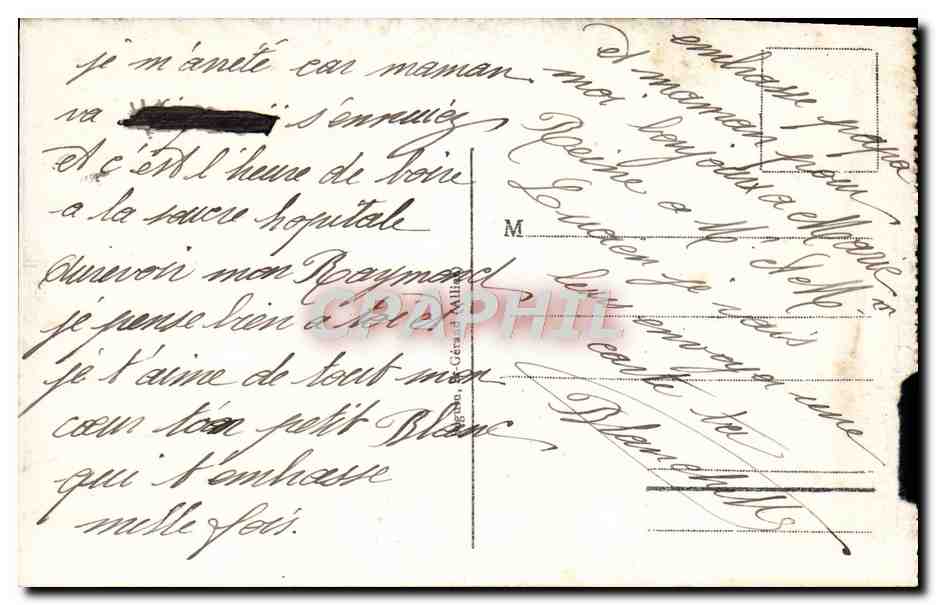 je m'arrété car maman
va s'ennuiez
et c'est l'heure de boire
a la source hopitale
aurevoir mon Raymond
je pense bien a toi et
je t'aime de tout mon
cœur ton petit Blanc
qui t'embrasse
mille fois.
embrasse papa
et maman pour
moi bonjour a Marie
Reine a M. et Mme
Lucien je vais
leur envoyer une
carte ta
Blanchette
M
CPAPHIL
St-Gérand